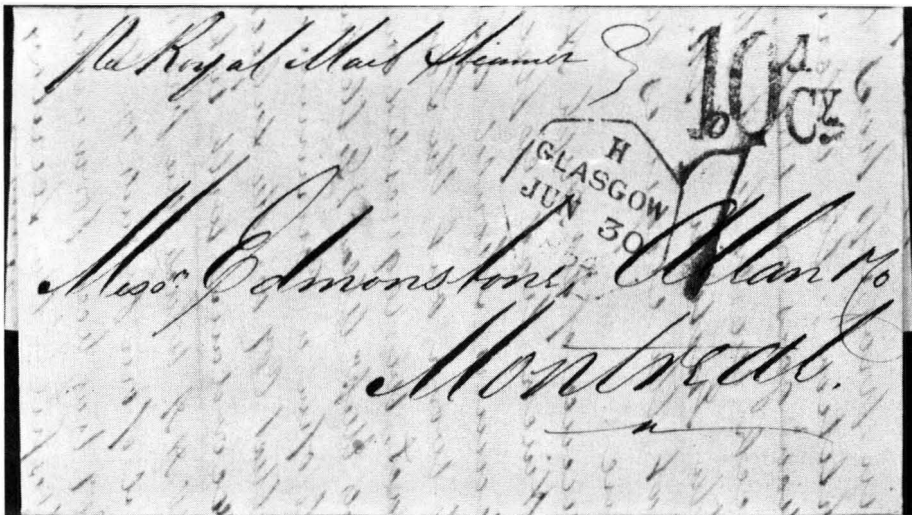 Per Royal Mail Steamer
10d. Cy.
H
GLASGOW
JUN 30
Messrs. Edmonstone, Allan & Co
Montreal.